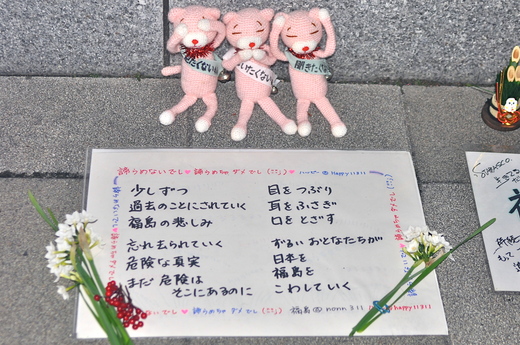 たくない
いたくない
聞きたく
諦めないでし♥諦めちゃダメでし(::)♥ハッピー@happy11311
少しずつ
過去のことにされていく
福島の悲しみ
忘れ去られていく
危険な真実
まだ危険は
そこにあるのに
目をつぶり
耳をふさぎ
口をとざす
ずるいおとなたちが
日本を
福島を
こわしていく
ないでし♥諦めちゃダメでし(::)♥福島@nonn311
happy11311